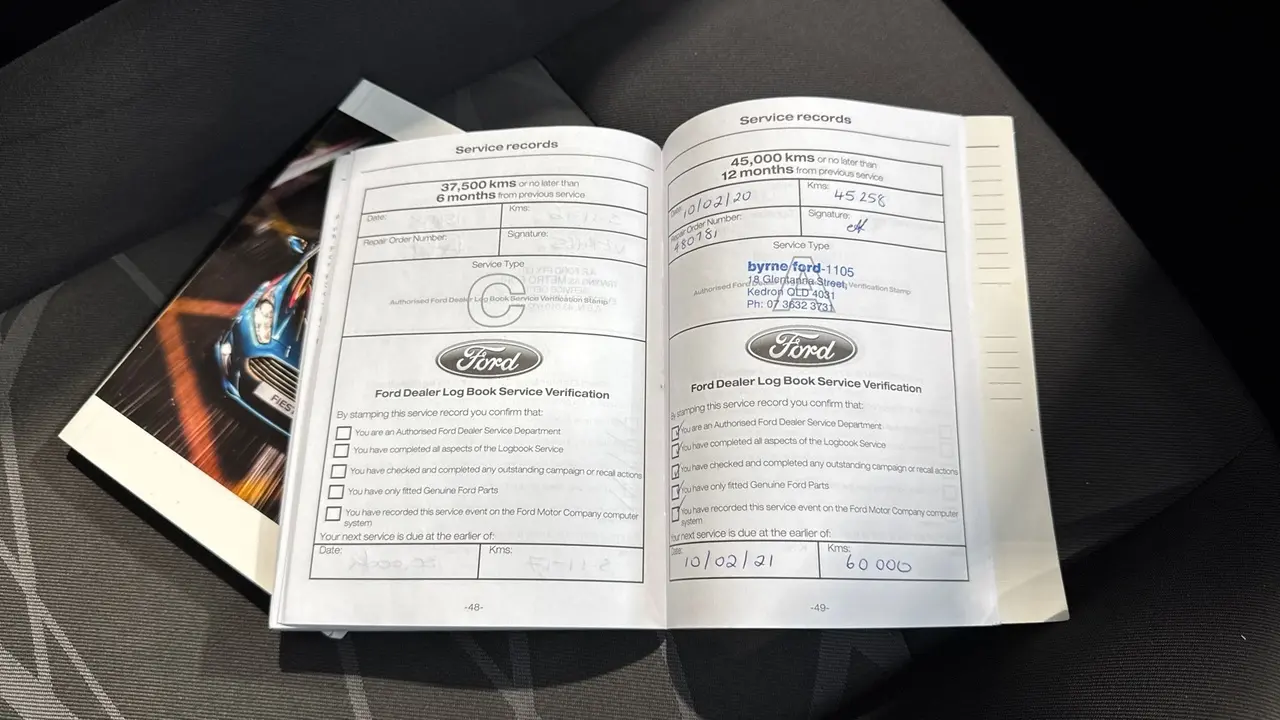 Service records
37,500 kms or no later than
6 months from previous service
Date:
Kms:
Repair Order Number:
Signature:
Service Type
C
Authorised Ford Dealer Log Book Service Verification Stamp
Ford
Ford Dealer Log Book Service Verification
By stamping this service record you confirm that:
You are an Authorised Ford Dealer Service Department
You have completed all aspects of the Logbook Service
You have checked and completed any outstanding campaign or recall actions
You have only fitted Genuine Ford Parts
You have recorded this service event on the Ford Motor Company computer
system
Your next service is due at the earlier of:
Date:
Kms:
-48-
Service records
45,000 kms or no later than
12 months from previous service
Date: 10/02/20
Kms:
45 258
Repair Order Number:
480781
Signature:
Service Type
A
byrne ford-1105
18 Glentanna Street,
Authorised Ford Verification Stamp
Kedron QLD 4031
Ph: 07 3632 3731
Ford
Ford Dealer Log Book Service Verification
By stamping this service record you confirm that:
You are an Authorised Ford Dealer Service Department
You have completed all aspects of the Logbook Service
You have checked and completed any outstanding campaign or recall actions
You have only fitted Genuine Ford Parts
You have recorded this service event on the Ford Motor Company computer
system
Your next service is due at the earlier of:
Date:
10/02/21
Kms:
60 000
-49-
FIES